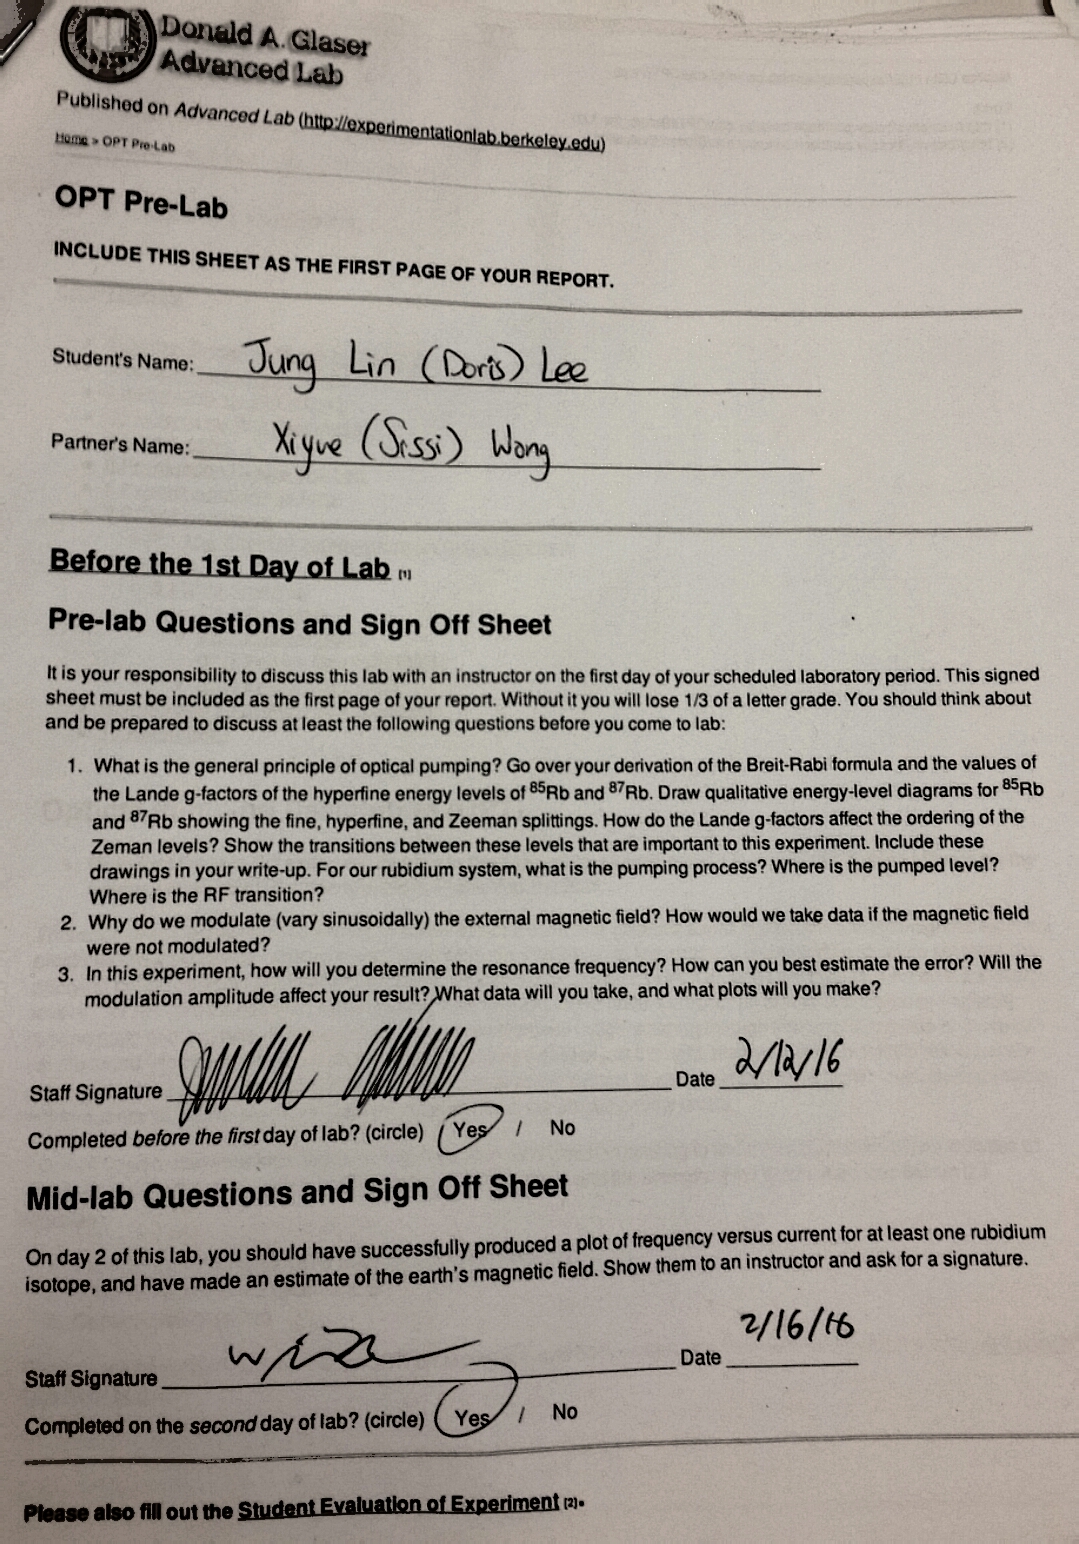 Donald A. Glaser
Advanced Lab
Published on Advanced Lab (http://experimentationlab.berkeley.edu)
Home > OPT Pre-Lab
OPT Pre-Lab
INCLUDE THIS SHEET AS THE FIRST PAGE OF YOUR REPORT.
Student's Name: Jung Lin (Doris) Lee
Partner's Name: Xiyue (Sissi) Wang
Before the 1st Day of Lab [1]
Pre-lab Questions and Sign Off Sheet
It is your responsibility to discuss this lab with an instructor on the first day of your scheduled laboratory period. This signed
sheet must be included as the first page of your report. Without it you will lose 1/3 of a letter grade. You should think about
and be prepared to discuss at least the following questions before you come to lab:
1. What is the general principle of optical pumping? Go over your derivation of the Breit-Rabi formula and the values of
the Lande g-factors of the hyperfine energy levels of 85Rb and 87Rb. Draw qualitative energy-level diagrams for 85Rb
and 87Rb showing the fine, hyperfine, and Zeeman splittings. How do the Lande g-factors affect the ordering of the
Zeman levels? Show the transitions between these levels that are important to this experiment. Include these
drawings in your write-up. For our rubidium system, what is the pumping process? Where is the pumped level?
Where is the RF transition?
2. Why do we modulate (vary sinusoidally) the external magnetic field? How would we take data if the magnetic field
were not modulated?
3. In this experiment, how will you determine the resonance frequency? How can you best estimate the error? Will the
modulation amplitude affect your result? What data will you take, and what plots will you make?
Staff Signature Date 2/12/16
Completed before the first day of lab? (circle) Yes / No
Mid-lab Questions and Sign Off Sheet
On day 2 of this lab, you should have successfully produced a plot of frequency versus current for at least one rubidium
isotope, and have made an estimate of the earth's magnetic field. Show them to an instructor and ask for a signature.
Staff Signature Date 2/16/16
Completed on the second day of lab? (circle) Yes / No
Please also fill out the Student Evaluation of Experiment [2].